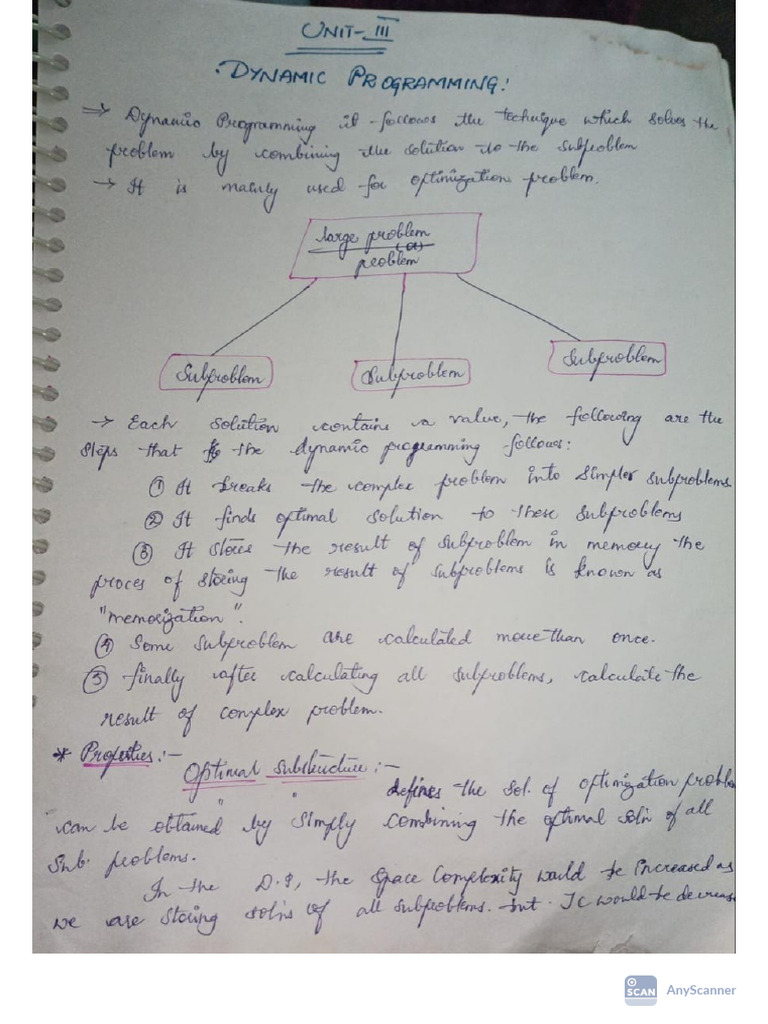 UNIT-III
DYNAMIC PROGRAMMING:
⇒ Dynamic Programming it follows the technique which solves the
problem by combining the solution to the subproblem
→ It is mainly used for optimization problem.
large problem
(or)
problem
Subproblem
Subproblem
Subproblem
→ Each solution contains a value, the following are the
steps that the dynamic programming follows:
① It breaks the complex problem into simpler subproblems
② It finds optimal solution to these subproblems
③ It stores the result of subproblem in memory the
proces of storing the result of subproblems is known as
"memorization".
④ Some subproblem are calculated more than once.
⑤ finally after calculating all subproblems, calculate the
result of complex problem.
* Properties:-
Optimal substructure:-
defines the sol. of optimization problem
can be obtained by simply combining the optimal soln of all
sub. problems.
In the D.P, the space complexity would be increased as
we are storing solns of all subproblems. but TC would be decrease
SCAN AnyScanner